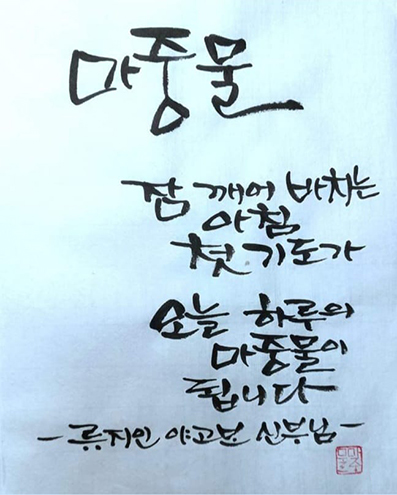 마중물
잠 깨어 바치는
아침
첫 기도가
오늘 하루의
마중물이
됩니다
- 류지인 야고보 신부님 -